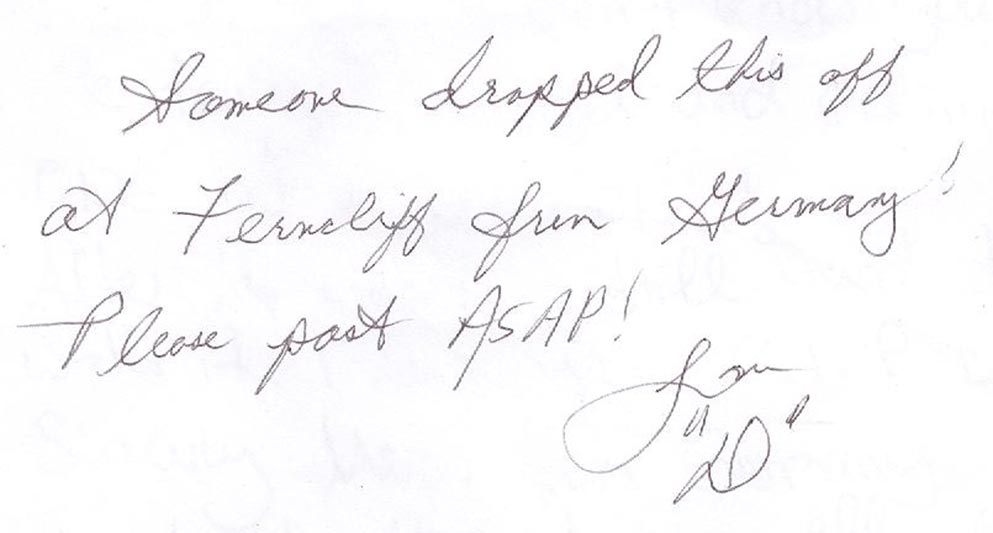 Someone dropped this off
at Ferncliff from Germany!
Please post ASAP!
Love
"D"